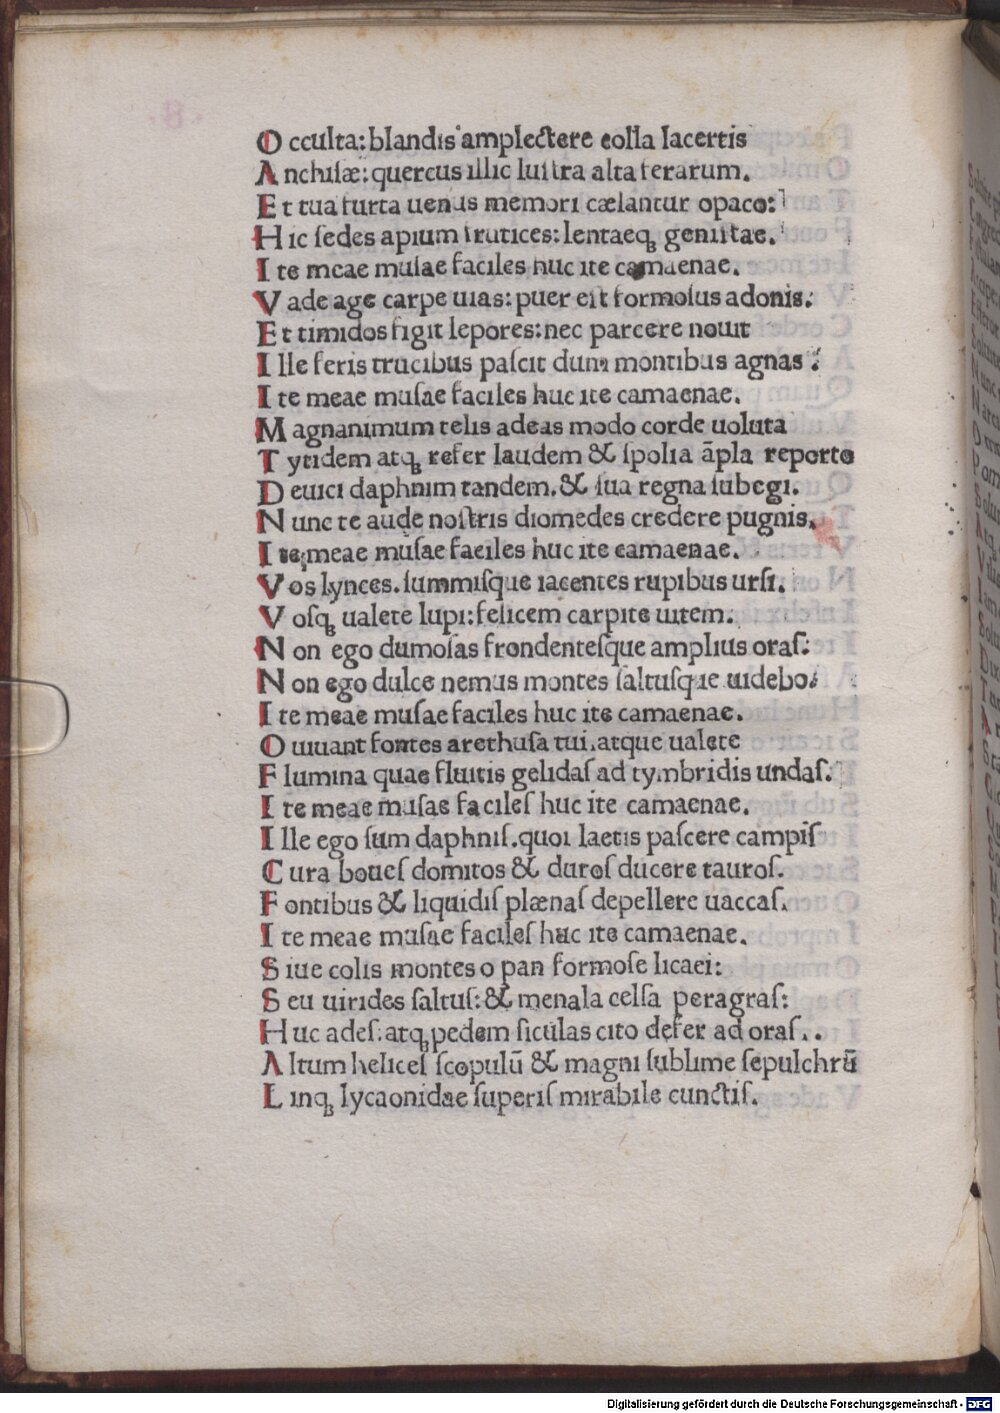 O cculta: blandis amplectere colla lacertis
A nchiſæ: quercus illic luſtra alta ferarum.
E t tua furta uenus memori cælantur opaco:
H ic ſedes apium frutices: lentaeqꝫ geniſtae.
I te meae muſae faciles huc ite camaenae.
V ade age carpe uias: puer eſt formoſus adonis.
E t timidos figit lepores: nec parcere nouit
I lle feris trucibus paſcit dum montibus agnas:
I te meae muſae faciles huc ite camaenae.
M agnanimum telis adeas modo corde uoluta
T ytidem atqꝫ refer laudem & ſpolia āpla reporto
D euici daphnim tandem. & ſua regna ſubegi.
N unc te aude noſtris diomedes credere pugnis.
I te: meae muſae faciles huc ite camaenae.
V os lynces. ſummiſque iacentes rupibus urſi.
V oſqꝫ ualete lupi: felicem carpite uitem.
N on ego dumoſas frondenteſque amplius oraſ:
N on ego dulce nemus montes ſaltuſque uidebo:
I te meae muſae faciles huc ite camaenae.
O uiuant fontes arethuſa tui. atque ualete
F lumina quae fluitis gelidaſ ad tymbridis undaſ.
I te meae muſae facileſ huc ite camaenae.
I lle ego ſum daphniſ. quoi laetis paſcere campiſ
C ura boueſ domitos & duroſ ducere tauroſ.
F ontibus & liquidiſ plænaſ depellere uaccaſ.
I te meae muſae facileſ huc ite camaenae.
S iue colis montes o pan formoſe licaei:
S eu uirides ſaltuſ: & menala celſa peragraſ:
H uc adeſ: atqꝫ pedem ſiculas cito defer ad oraſ..
A ltum heliceſ ſcopulū & magni ſublime ſepulchrū
L inqꝫ lycaonidae ſuperiſ mirabile cunctiſ.
Digitalisierung gefördert durch die Deutsche Forschungsgemeinschaft - DFG